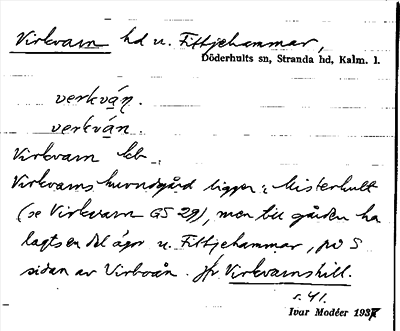 Virkvarn hd u. Fittjehammar,
Döderhults sn, Stranda hd, Kalm. l.
verkván.
verkván.
Virkvarn kb
Virkvarns huvudgård ligger i Misterhult
(se Virkvarn GS 29), men till gården ha
lagts en del ägor u. Fittjehammar, på S
sidan av Virboån. Jfr Virkvarnshill.
s. 41.
Ivar Modéer 1937